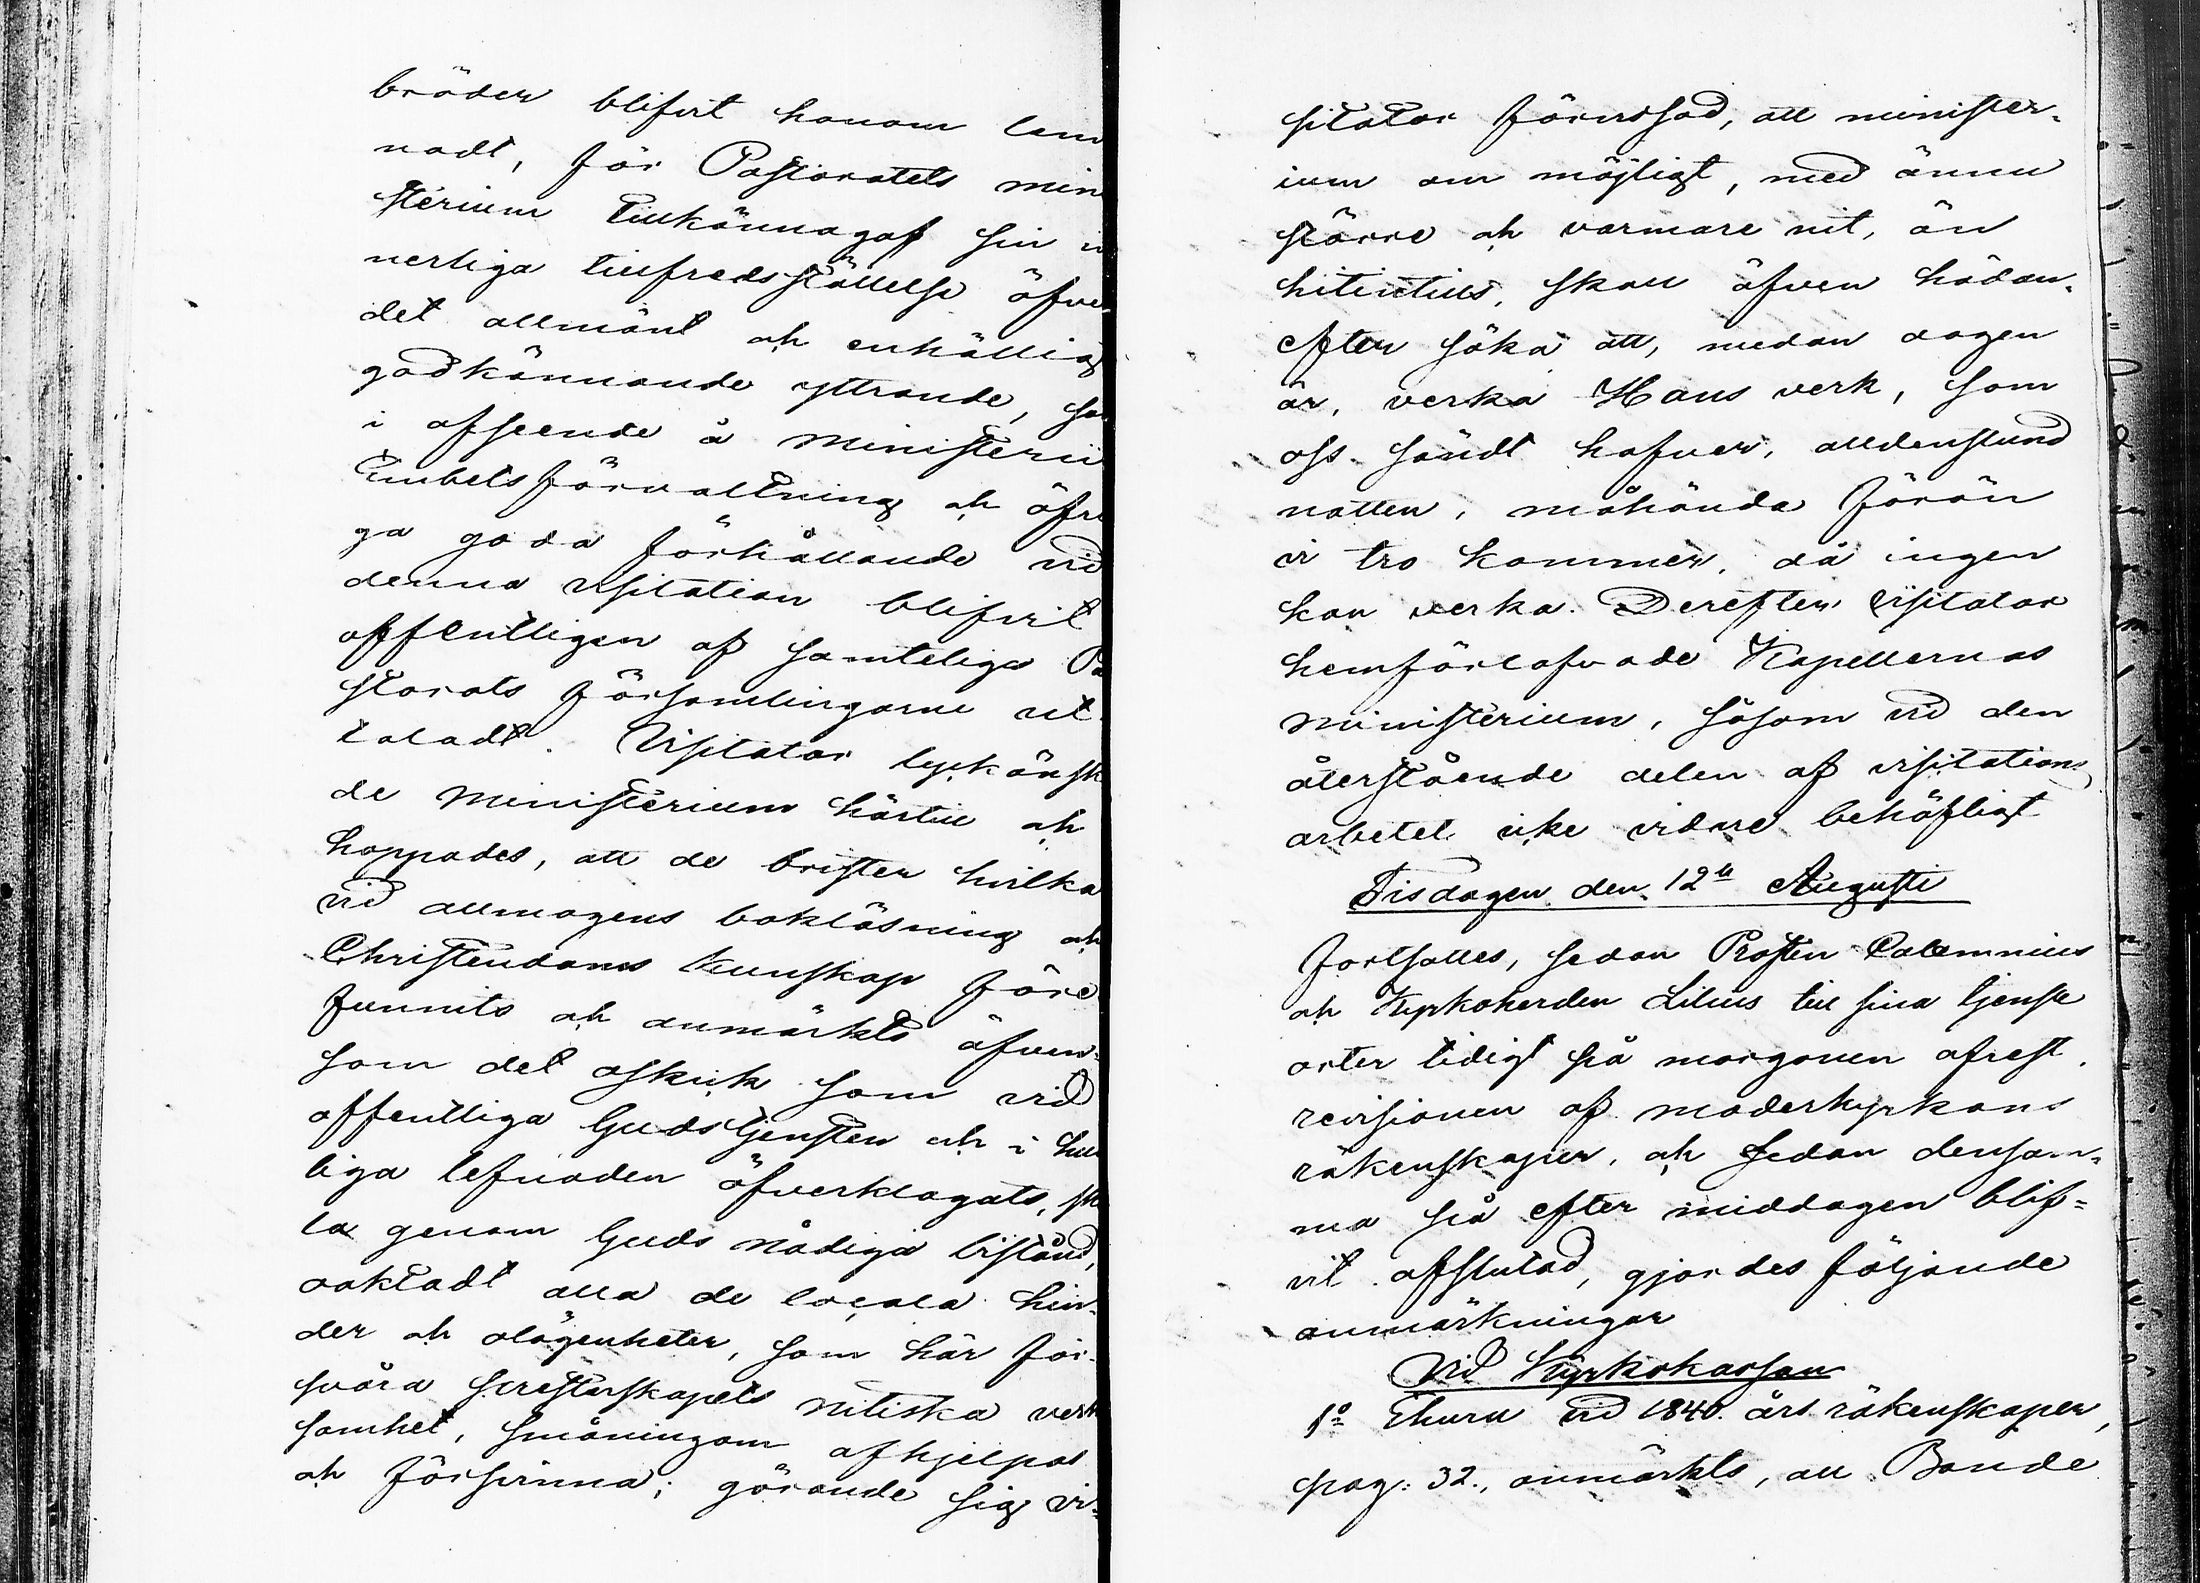 bröder blifvit honom lem
nadt, för Pastoratets min
sterium tillkännagaf sin in
nerliga tillfredsställelse öfver
det allmänt och enhälligt
godkännande yttrande, som
i afseende å Ministerii
Embetsförvaltning och öfri
ga goda förhållande vid
denna visitation blifvit
offentligen af samteliga Pa
storats församlingarne ut
taladt. Visitator lyckönsk
de Ministerium härtill och
hoppades, att de brister hvilka
vid allmogens bokläsning och
Christendoms kunskap före
funnits och anmärkts äfven-
som det oskick som vid
offentliga Gudstjensten och i hus
liga lefnaden öfverklagats, sko
la genom Guds nådiga bistånd,
oaktadt alla de locala hin-
der och olägenheter, som här för-
svåra presterskapets nitiska verk
samhet, småningom afhjelpas
och försvinna; görande sig vi-
sitator förvissad, att minister-
ium om möjligt, med ännu
större och varmare nit, än
hitintills, skall äfven hädan-
efter söka att, medan dagen
är, verka Hans verk, som
oss sändt hafver, alldenstund
natten, måhända förän
vi tro kommer, då ingen
kan verka. Derefter Visitator
hemförlofvade Kapellernas
ministerium, såsom vid den
återstående delen af visitations
arbetet icke vidare behöfligt
Tisdagen den 12te Augusti
fortsattes, sedan Prosten Calamnius
och Kyrkoherden Lilius till sina tjenste
orter tidigt på morgonen afrest.
revisionen af moderkyrkans
räkenskaper, och sedan densam-
ma på efter middagen blif-
vit afslutad, gjordes följande
anmärkningar
Vid Kyrkokassan
1o Ehuru vid 1840. års räkenskaper,
pag: 32., anmärkts, att Bonde